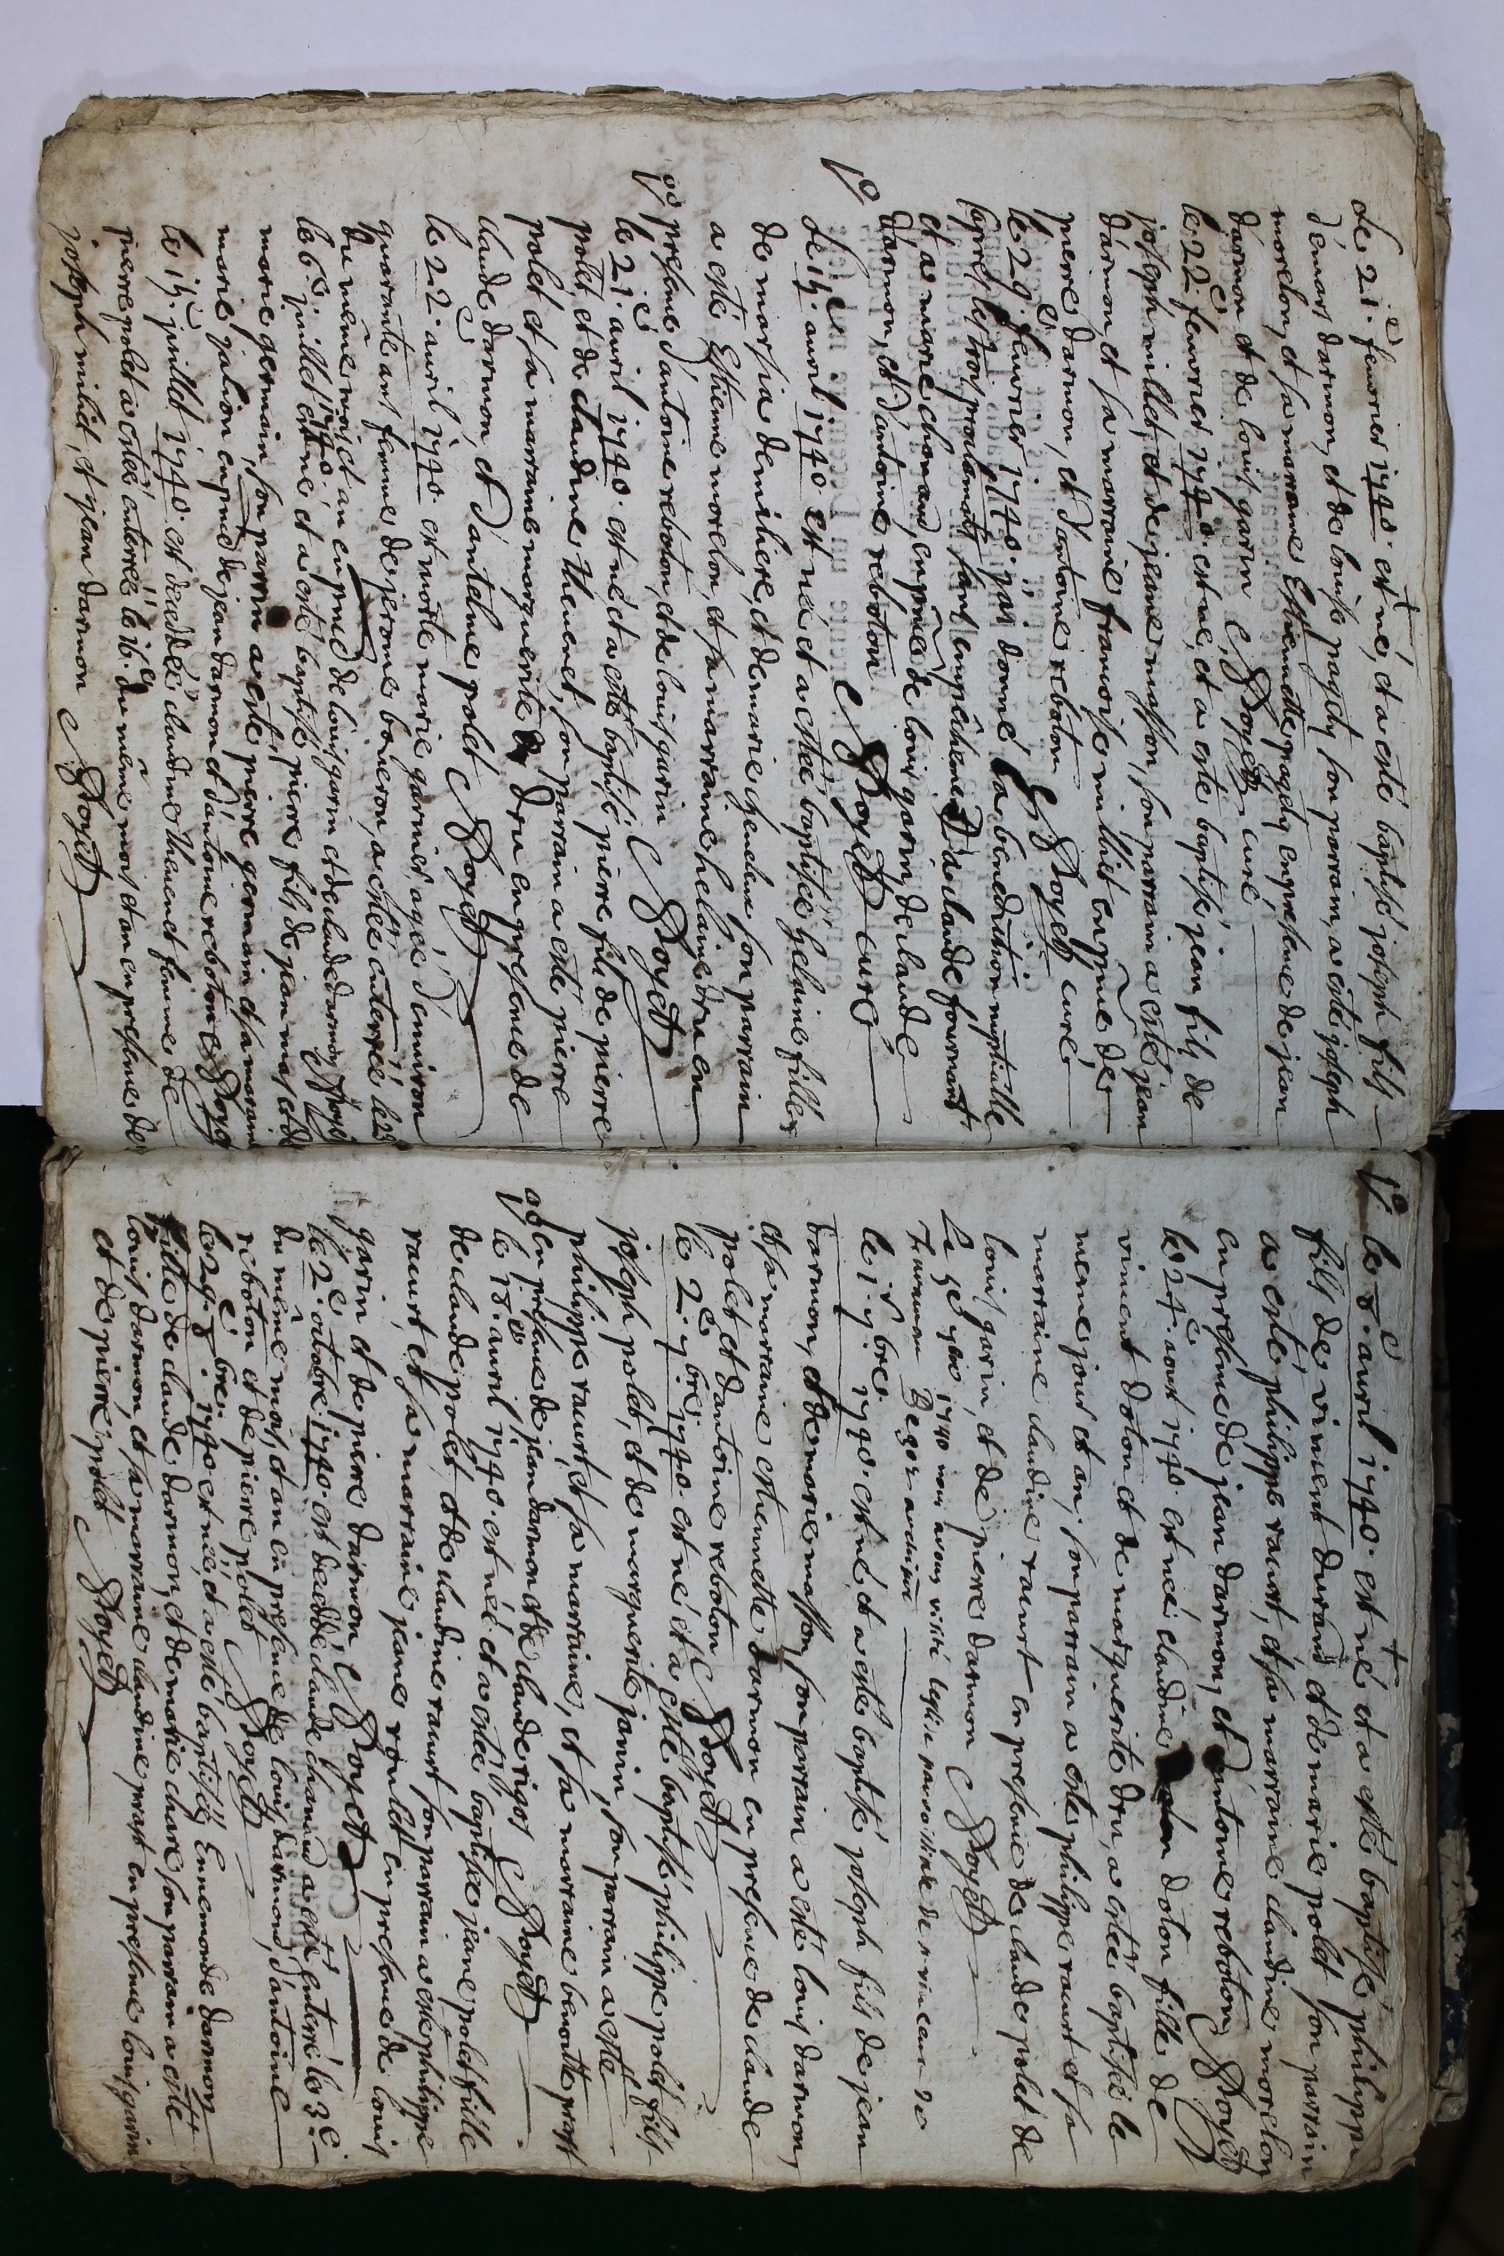 Le 21.e feuvrier 1740. est né, et a esté baptisé joseph fils
d'emar darmon, et de louise pagely son parrain, a esté joseph
morelon, et sa marraine Estiennette pagely en presence de jean
darmon et de louis garin C. Doyet curé
le 22.e feuvrier 1740. est né, et a esté baptisé jean fils de
joseph millet, et de jeane masson, son parrain a esté jean
darmon, et sa marraine françoise milliet en pnce de
pierre darmon, et d'antoine reboton C. Doyet curé
le 29.e feuvrier 1740. j'ai donné la benediction nuptialle
apres les trois proclamats sans empêchement a claude fourrant
et a marie chomand, en pnce de louis garin, de claude
darmon, et d'antoine rebotton C. Doyet curé
Le 15.e auril 1740. est née et a estée baptisée helaine fille
de marsia demihere, et de marie son parrain
a esté Estienne morelon, et sa marraine helaine dru en
presence d'antoine reboton, et de louis garin C. Doyet
le 21.e auril 1740. est né et a esté baptisé pierre fils de pierre
polet, et de claudine thevenet, son parrain a esté pierre
polet, et sa marraine marguerite dru en presence de
claude darmon, et d'antelme polet C. Doyet
le 22.e auril 1740. est morte marie garnier agée d'environ
quarante ans femme de jerome boneron, a estée enterrée le 23
du même mois et an en pnce de louis garin et de claude darmon C. Doyet
le 6.e juillet 1740 est né et a esté baptisé pierre fils de jean mas et de
marie germain, son parrin a esté pierre germain et sa marraine
marie jalion en pnce de jean darmon et d'antoine reboton C. Doyet
le 15.e juillet 1740. est decedée claudine thevenet femme de
pierre polet a estée enterrée le 16.e du même mois et an en presence de
joseph milliet, et jean darmon C. Doyet
le 8.e auril 1740. est né et a esté baptisé philippe
fils de viment durand et de marie polet son parrain
a esté philippe racurt, et sa marraine claudine morelon
en presence de jean darmon, et d'antoine reboton C. Doyet
le 27.e aout 1740 est née claudine doton fille de
viment doton et de marguerite dru, a estée baptisée le
meme jour et an, son parrain a esté philippe racurt et sa
marraine claudine racurt en presence de claude polet de
louis garin, et de pierre darmon C. Doyet
Le 1740 nous avons visité leglise de
le 1.r 9bre 1740. est né et a esté baptisé joseph fils de jean
darmon, et de marie masson, son parrain a esté louis darmon,
et sa marraine estiennette darmon en presence de claude
polet et d'antoine reboton C. Doyet
le 2.e 9bre 1740. est né et a esté baptisé philippe polet fils
joseph polet, et de marguerite janin, son parrain a esté
philippe racurt, et sa marraine, et sa marraine benoitte prast
en presence de jean darmon et de claude rigos C. Doyet
le 18.e auril 1740. est née et a estée baptisée jeane polet fille
de claude polet, et de claudine racurt son parrain a esté philippe
racurt, et sa marraine jeane roulet en presence de louis
garin et de pierre darmon C. Doyet
le 2.e octobre 1740. est decedé claude chomand a esté enterré le 3.e
du même mois, et an en presence de louis darmond, d'antoine
reboton et de pierre polet C. Doyet
le 29.e 8bre 1740 est née, et a esté baptisée Ennemonde darmon
fille de claude darmon, et de marie chare son parrain a esté
louis darmon, et sa marraine claudine prast en presence louis garin
et de pierre polet C. Doyet